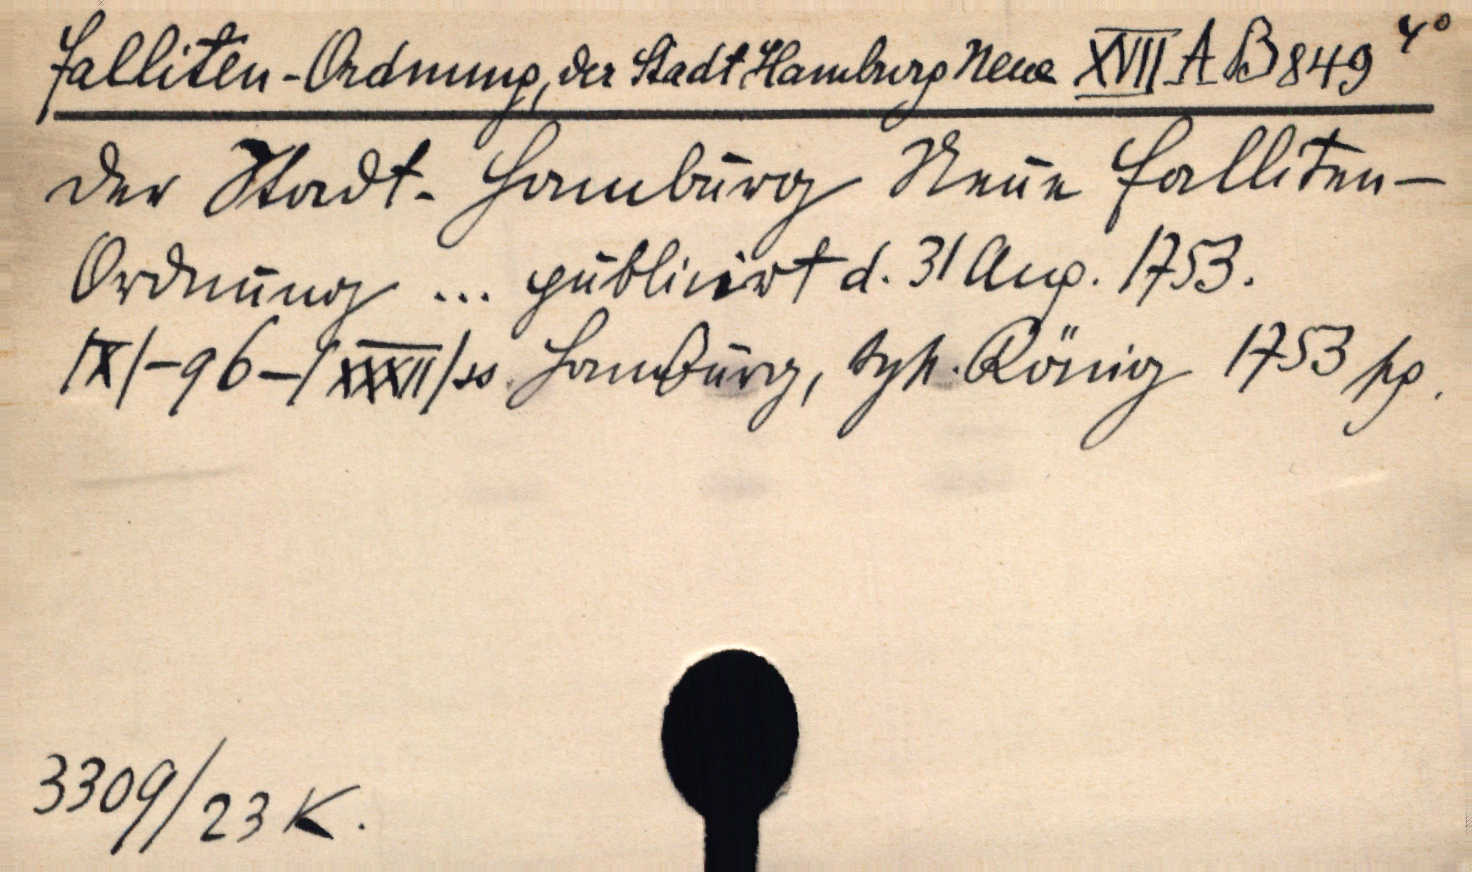 Falliten-Ordnung, der Stadt Hamburg Neue XVII A B 849 4°
Der Stadt- Hamburg Neue Falliten-
Ordnung ... publicirt d. 31 Aug. 1753.
/X/-96-/XXXII/ss. Hamburg, typ. König 1753
3309/23 K.